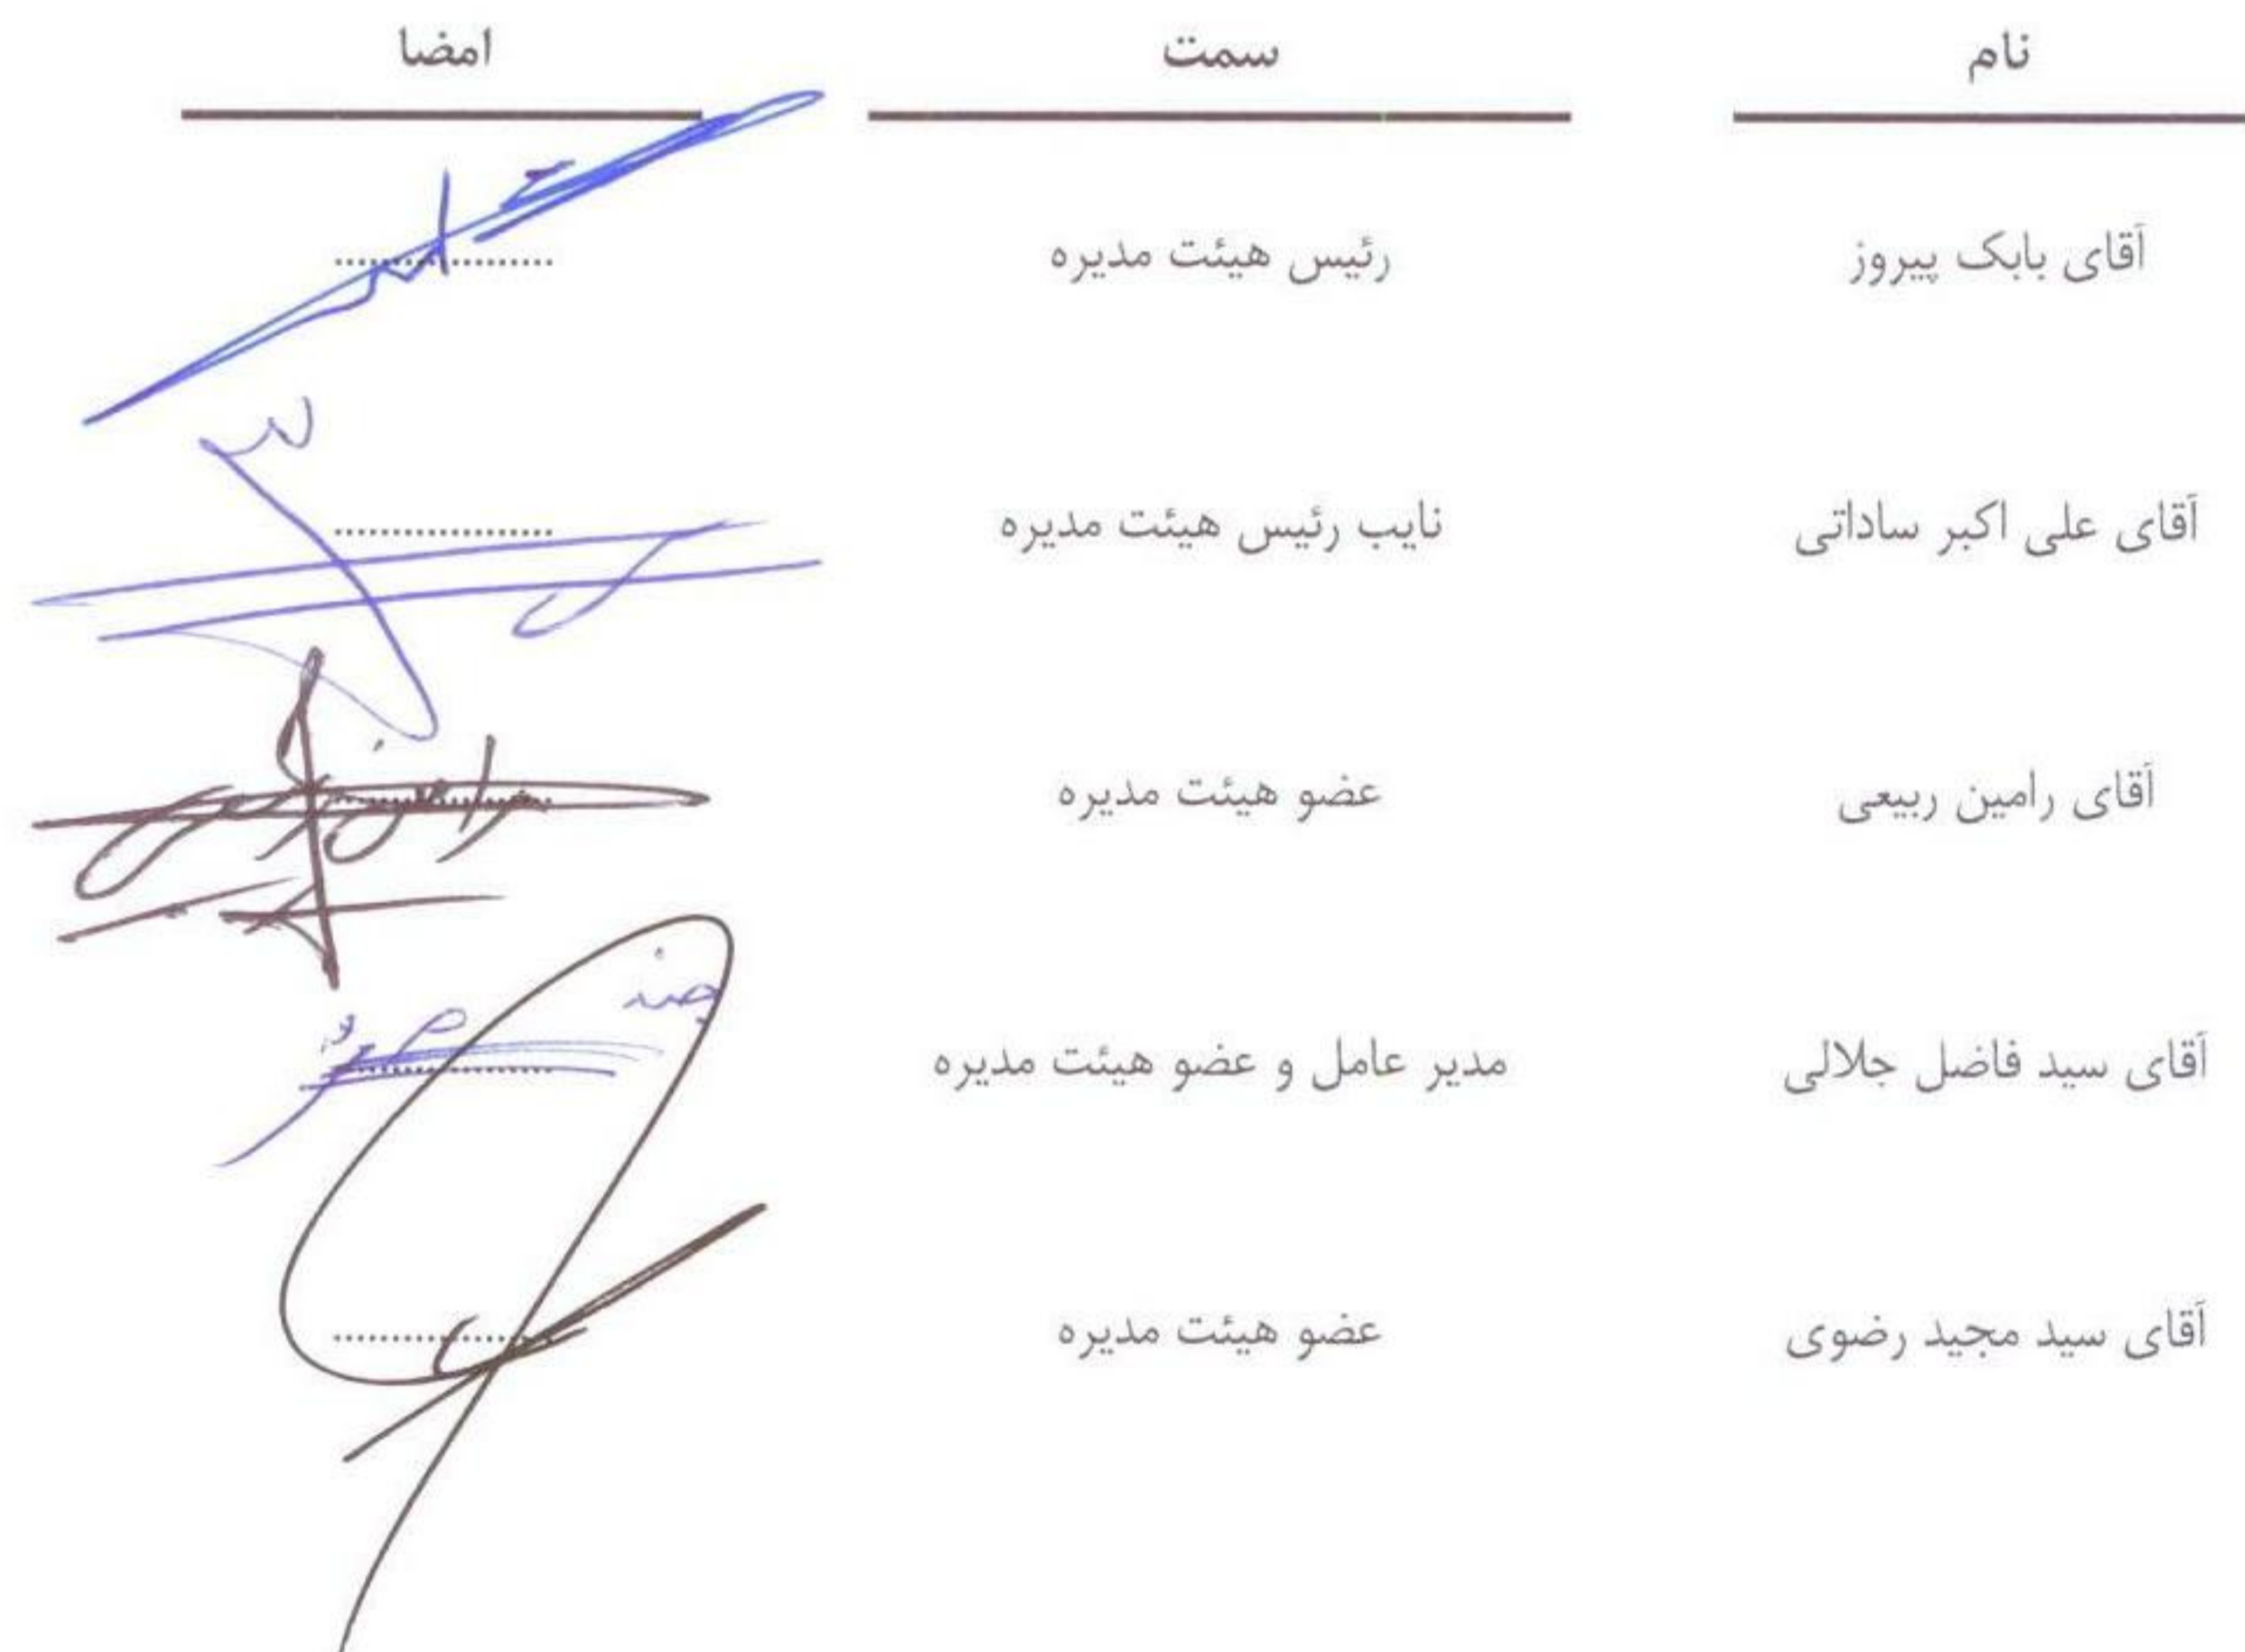 نام سمت امضا
آقای بابک پیروز رئیس هیئت مدیره
آقای علی اکبر ساداتی نایب رئیس هیئت مدیره
آقای رامین ربیعی عضو هیئت مدیره
آقای سید فاضل جلالی مدیر عامل و عضو هیئت مدیره
آقای سید مجید رضوی عضو هیئت مدیره